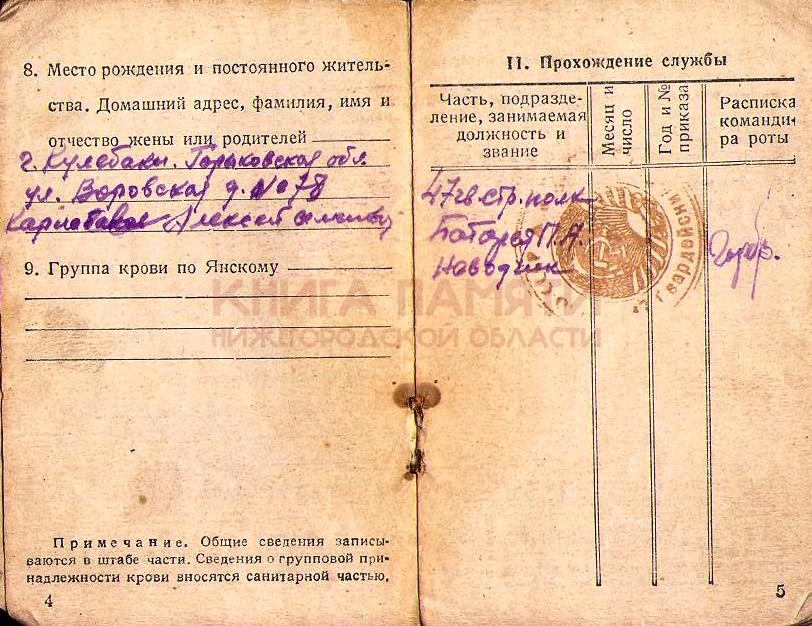 8. Место рождения и постоянного житель-
ства. Домашний адрес, фамилия, имя и
отчество жены или родителей
г. Кулебаки. Горьковская обл.
ул. Воровская д. № 78
Алексей
9. Группа крови по Янскому
КНИГА ПАМЯТИ
НИЖЕГОРОДСКОЙ ОБЛАСТИ
Примечание. Общие сведения записы-
ваются в штабе части. Сведения о групповой при-
надлежности крови вносятся санитарной частью.
4
II. Прохождение службы
Часть, подразде-
ление, занимаемая
должность и
звание
Месяц и
число
Год и №
приказа
Расписка
команди-
ра роты
47 гв. стр. полк
Батарея П.А.
Наводчик
гвардейский
5